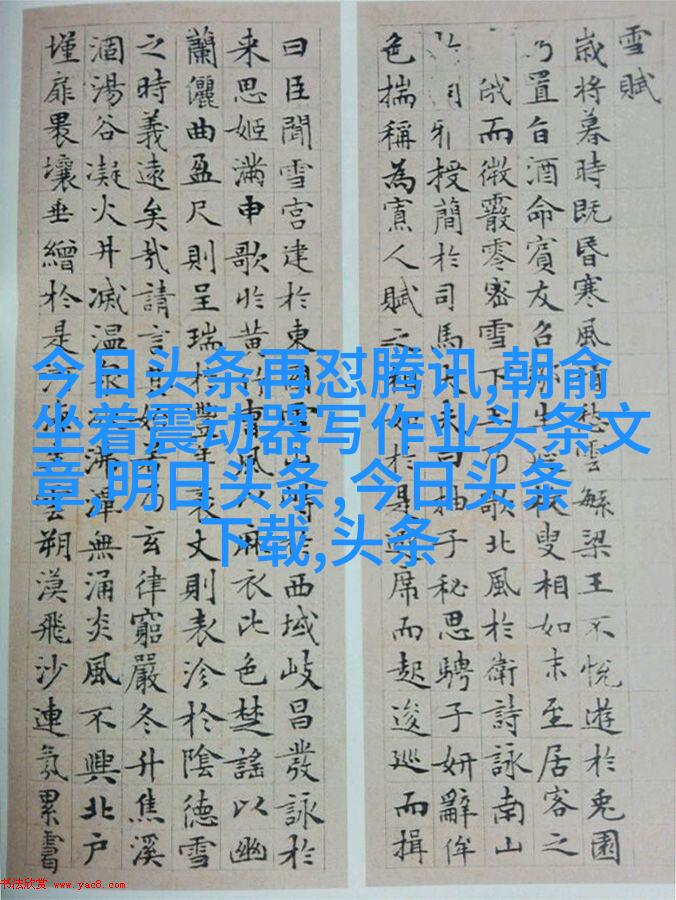 雪賦
歲將暮時既昏寒風積愁雲繁梁王不悅遊於兔園
乃置旨酒命賓友召鄒生延枚叟相如末至居客之
俄而微霰零密雪下王乃歌北風於衛詩詠南山
授簡於司馬大夫曰抽子秘思騁子妍辭侔
色揣稱為寡人賦之相如於是避席而起逡巡而揖
曰臣聞雪宮建於東國雪山峙於西域岐昌發詠於
来思姬滿申歌於黃竹曹風以麻衣比色楚謠以幽
蘭儷曲盈尺則呈瑞於豐年袤丈則表沴於陰德雪
之時義遠矣哉請言其始若乃玄律窮嚴冬升焦溪
涸湯谷凝火井滅溫泉冰沸潭無涌炎風不興北户
墐扉壤垂繒於是河海生雲朔漠飛沙連氛累靄
今日头条再怼腾讯,朝俞
坐着震动器写作业头条文
章,明日头条,今日头条
下载,头条
书法欣赏 www.yac8.com